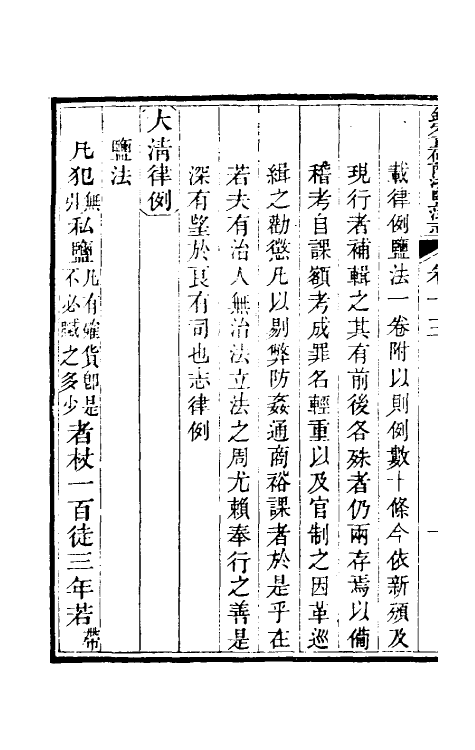 卷十三
一
載律例鹽法一卷附以則例數十條今依新頒及
現行者補輯之其有前後各殊者仍兩存焉以備
稽考自課額考成罪名輕重以及官制之因革巡
緝之勸懲凡以剔弊防姦通商裕課者於是乎在
若夫有治人無治法立法之周尤賴奉行之善是
深有望於良有司也志律例
大清律例
鹽法
凡犯無引私鹽凡有確貨卽是不必贓之多少者杖一百徒三年若帶